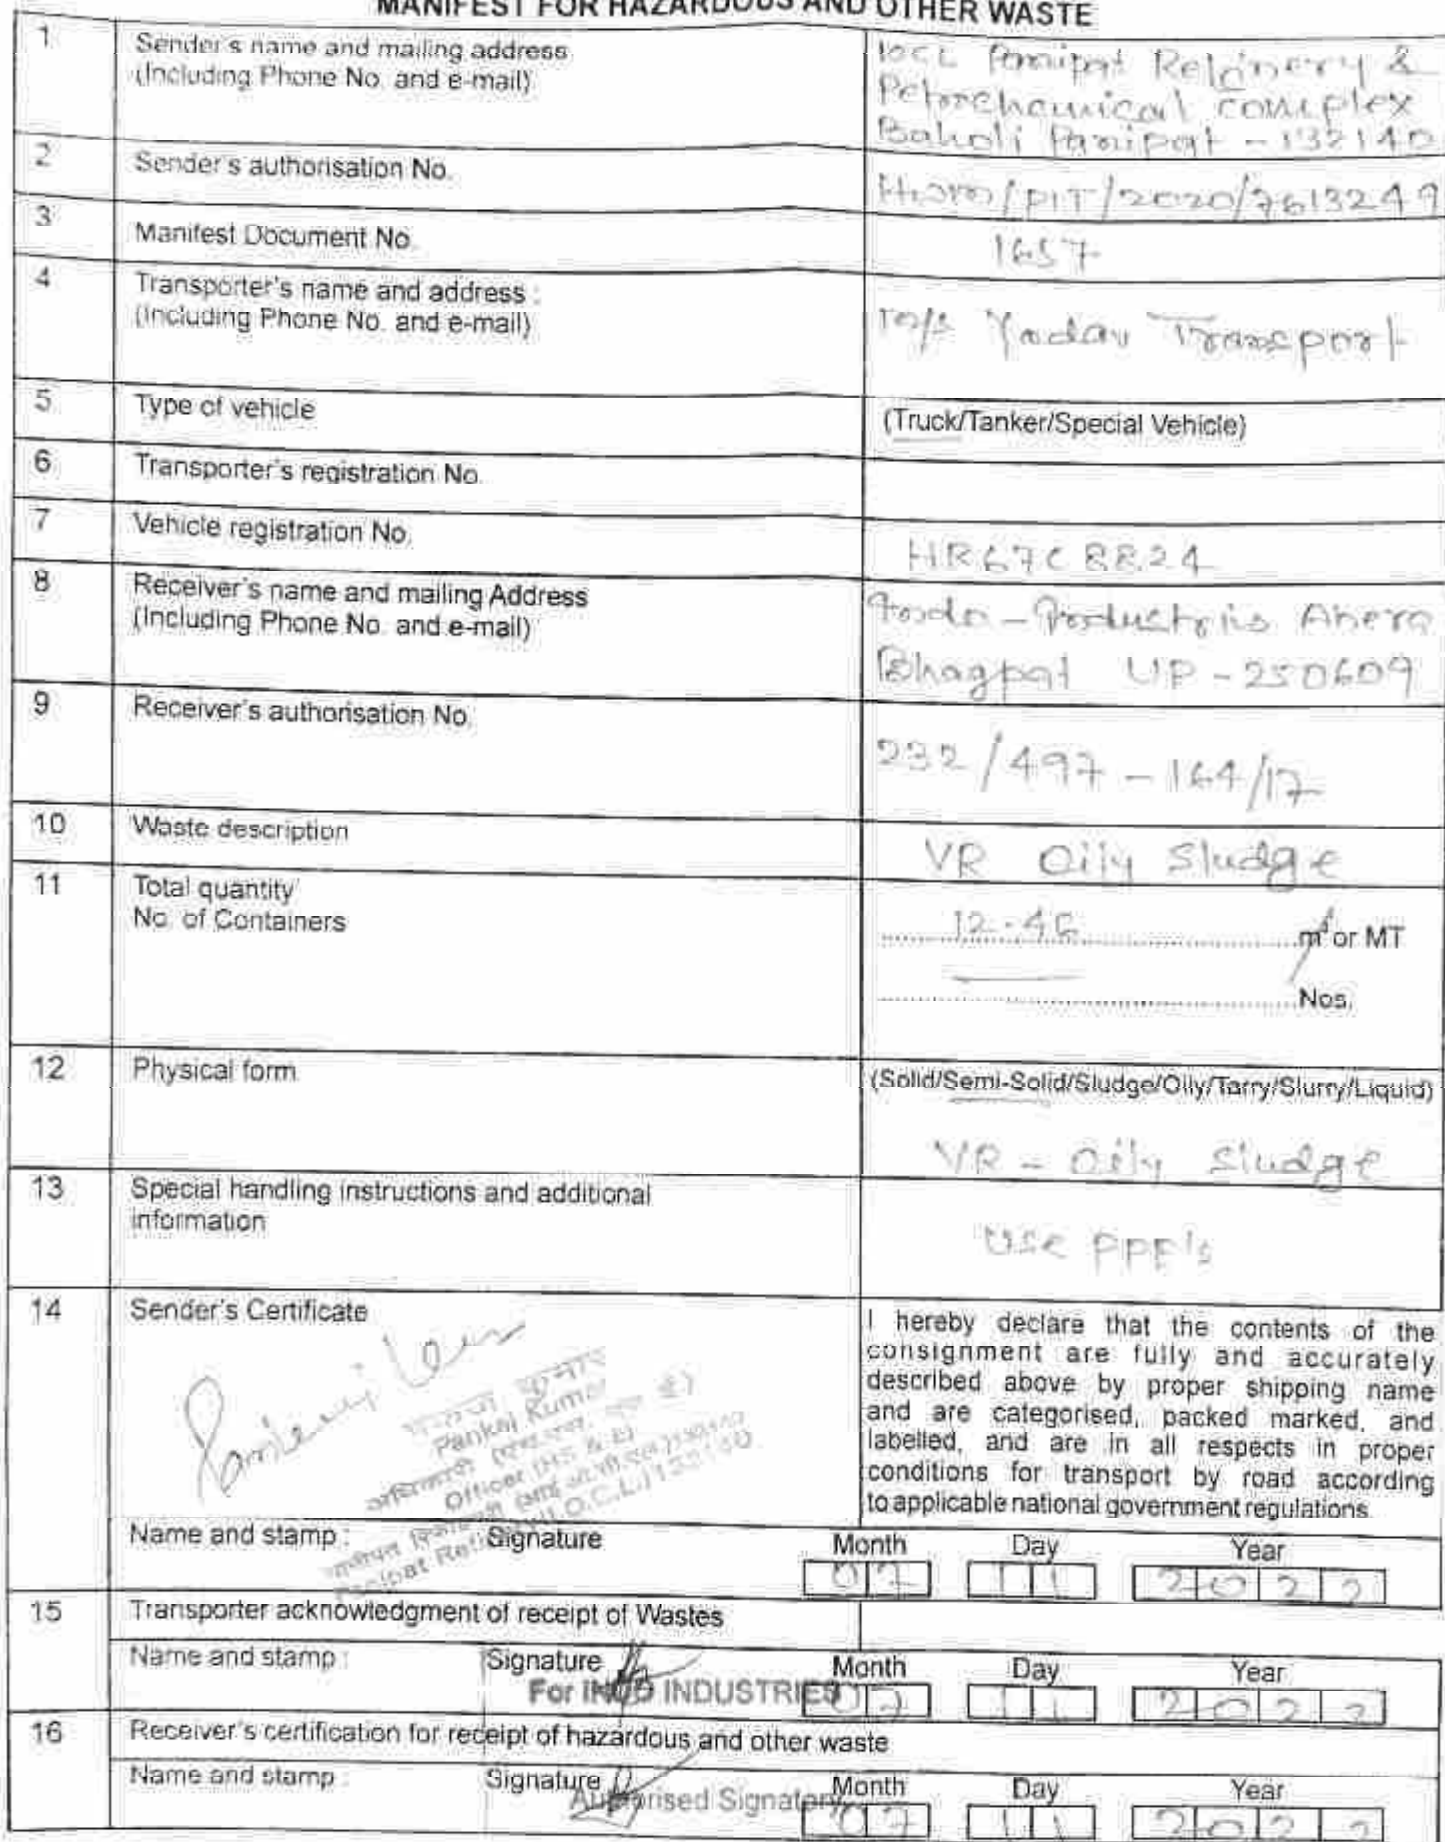 MANIFEST FOR HAZARDOUS AND OTHER WASTE
1 Sender's name and mailing address
(Including Phone No. and e-mail)
IOCL Panipat Refinery &
Petrochemical complex
Baholi Panipat - 132140
2 Sender's authorisation No.
/PIT/2020/7613249
3 Manifest Document No.
1657
4 Transporter's name and address :
(Including Phone No. and e-mail)
M/s Yadav Transport
5 Type of vehicle
(Truck/Tanker/Special Vehicle)
6 Transporter's registration No.
7 Vehicle registration No.
HR67C8824
8 Receiver's name and mailing Address
(Including Phone No. and e-mail)
Ahera
Bhagpat UP - 250609
9 Receiver's authorisation No.
232/497 - 164/17
10 Waste description
VR Oily Sludge
11 Total quantity
No. of Containers
12.46 m³ or MT
Nos.
12 Physical form
(Solid/Semi-Solid/Sludge/Oily/Tarry/Slurry/Liquid)
VR - Oily Sludge
13 Special handling instructions and additional
information
Use PPE's
14 Sender's Certificate
I hereby declare that the contents of the
consignment are fully and accurately
described above by proper shipping name
and are categorised, packed marked, and
labelled, and are in all respects in proper
conditions for transport by road according
to applicable national government regulations.
Pankaj Kumar
Officer (HS & E)
Panipat Ref (I.O.C.L.) 132140
Name and stamp : Signature Month Day Year
07 11 2022
15 Transporter acknowledgment of receipt of Wastes
Name and stamp : Signature Month Day Year
For INDO INDUSTRIES 07 11 2022
16 Receiver's certification for receipt of hazardous and other waste
Name and stamp : Signature Month Day Year
Authorised Signatory 07 11 2022